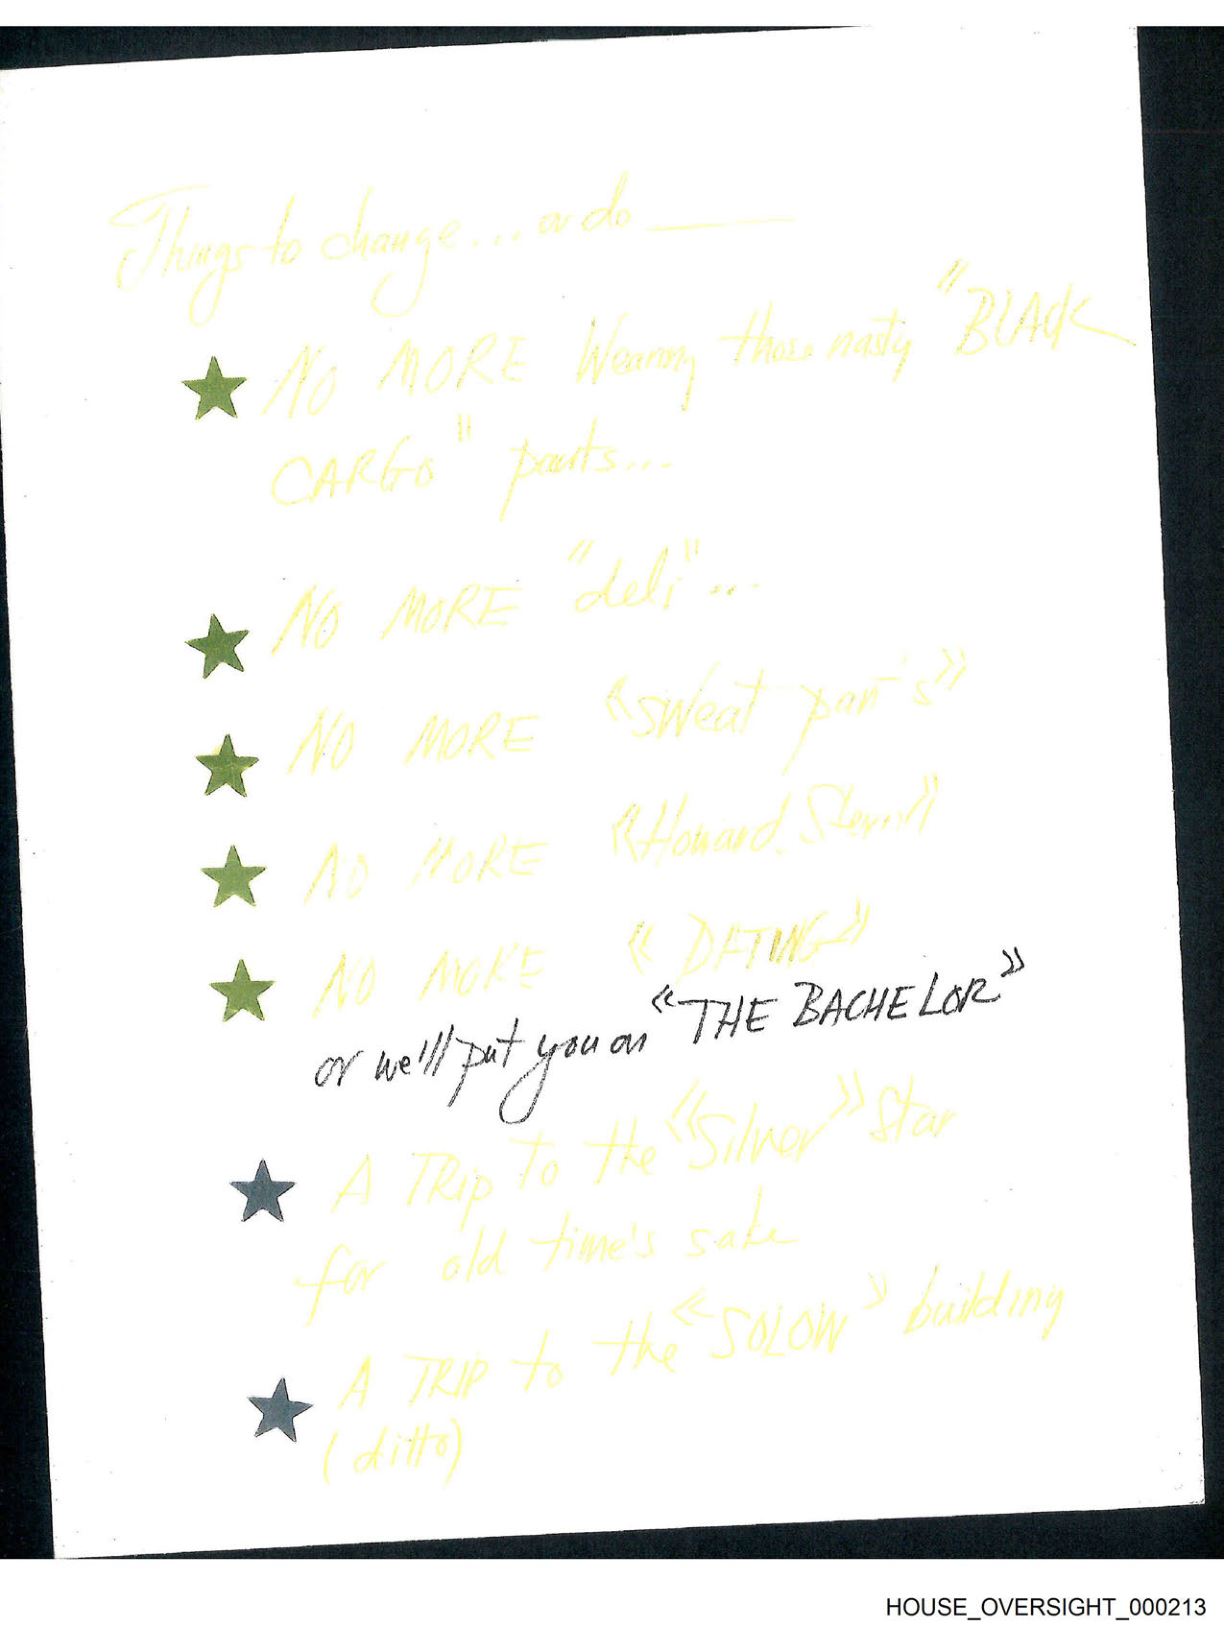 Things to change... or do ___
NO MORE Wearing those nasty "BLACK
CARGO" pants...
NO MORE "deli"...
NO MORE "sweat pants"
NO MORE "Howard Stern"
NO MORE "DATING"
or we'll put you on "THE BACHELOR"
A TRip to the "Silver" Star
for old time's sake
A TRIP to the "SOLOW" building
(ditto)
HOUSE_OVERSIGHT_000213